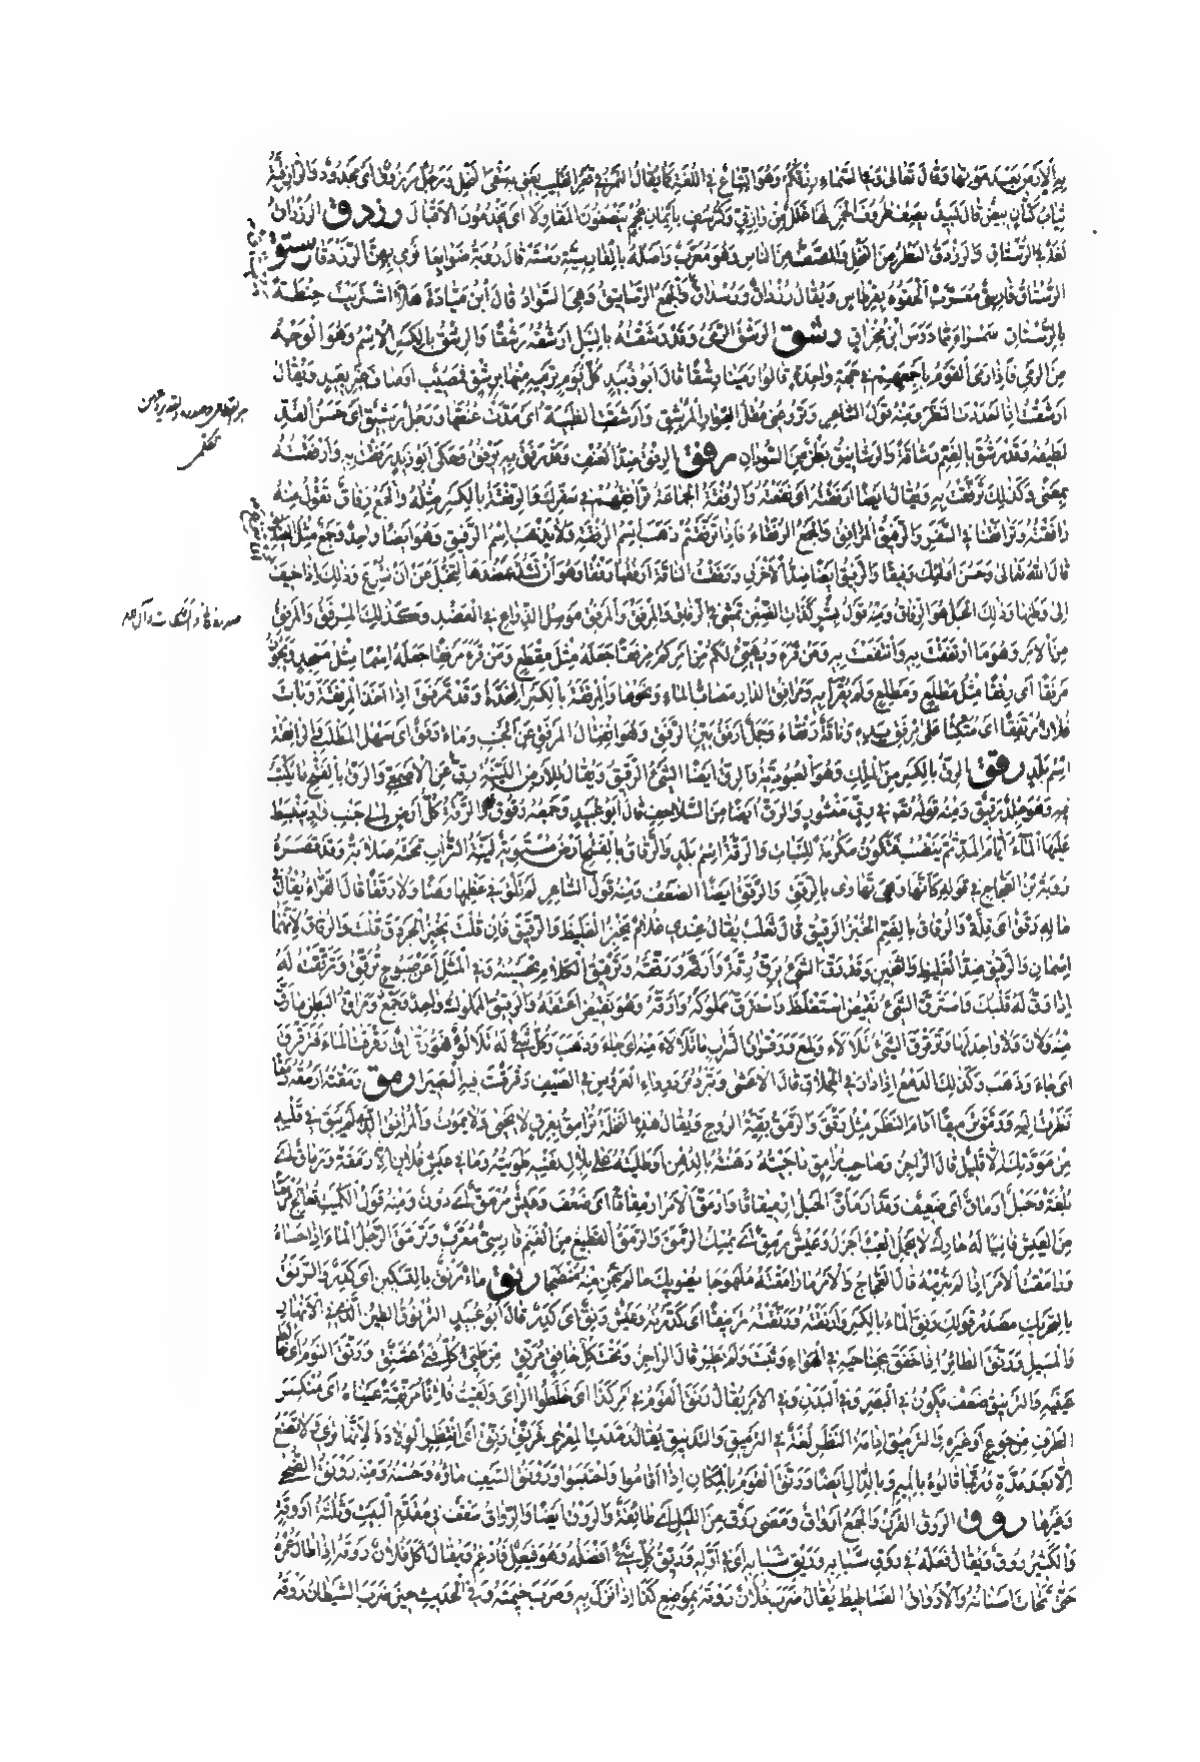 بِهِ الْاَرْضَ بَعْدَ مَوْتِهَا وَقَالَ تَعَالَى وَفِي السَّمَاءِ رِزْقُكُمْ وَهُوَ اتِّسَاعٌ فِي اللُّغَةِ كَمَا يُقَالُ التَّمْرُ فِي قَعْرِ الْقَلِيبِ يَعْنِي بِهِ سَقْيَ النَّخْلِ وَرَجُلٌ مَرْزُوقٌ اَيْ مَجْدُودٌ وَالرَّازِقِيَّةُ
ثِيَابُ كَتَّانٍ بِيضٌ قَالَ لَبِيدٌ يَصِفُ ظُرُوفَ الْخَمْرِ لَهَا غَلَلٌ مِنْ رَازِقِيٍّ وَكُرْسُفٍ بِاَيْمَانِ عُجْمٍ يَنْصُفُونَ الْمَقَاوِلَا اَيْ يَخْدُمُونَ الْاَقْيَالَ رزدق الرُّزْدَاقُ
لُغَةٌ فِي الرُّسْتَاقِ وَالرَّزْدَقُ السَّطْرُ مِنَ النَّخْلِ وَالصَّفُّ مِنَ النَّاسِ وَهُوَ مُعَرَّبٌ وَاَصْلُهُ بِالْفَارِسِيَّةِ رَسْتَهْ قَالَ رُؤْبَةُ ضَوَابِعًا تَرْمِي بِهِنَّ الرَّزْدَقَا رستق
الرُّسْتَاقُ فَارِسِيٌّ مُعَرَّبٌ اَلْحَقُوهُ بِقُرْطَاسٍ وَيُقَالُ رُزْدَاقٌ وَرُسْدَاقٌ وَالْجَمْعُ الرَّسَاتِيقُ وَهِيَ السَّوَادُ قَالَ ابْنُ مَيَّادَةَ هَلَّا اشْتَرَيْتَ حِنْطَةً
بِالرُّسْتَاقِ سَمْرَاءَ مِمَّا دَرَسَ ابْنُ مِخْرَاقِ رشق الرَّشْقُ الرَّمْيُ وَقَدْ رَشَقْتُهُ بِالنَّبْلِ اَرْشُقُهُ رَشْقًا وَالرِّشْقُ بِالْكَسْرِ الْاِسْمُ وَهُوَ الْوَجْهُ
مِنَ الرَّمْيِ فَاِذَا رَمَى الْقَوْمُ بِاَجْمَعِهِمْ فِي جِهَةٍ وَاحِدَةٍ قَالُوا رَمَيْنَا رِشْقًا قَالَ اَبُو زُبَيْدٍ كُلَّ يَوْمٍ تَرْمِيهِ مِنْهَا بِرِشْقٍ فَمُصِيبٌ اَوْ صَافَ غَيْرَ بَعِيدِ وَيُقَالُ
اَرْشَقْتُ اِذَا اَحْدَدْتَ النَّظَرَ وَمِنْهُ قَوْلُ الشَّاعِرِ وَتَرُوعُنِي مُقَلُ الصِّوَارِ الْمُرْشِقِ وَاَرْشَقَتِ الظَّبْيَةُ اَيْ مَدَّتْ عُنُقَهَا وَرَجُلٌ رَشِيقٌ اَيْ حَسَنُ الْقَدِّ
لَطِيفُهُ وَقَدْ رَشُقَ بِالضَّمِّ رَشَاقَةً رفق الرِّفْقُ ضِدُّ الْعُنْفِ وَقَدْ رَفَقَ بِهِ يَرْفُقُ وَحَكَى اَبُو زَيْدٍ رَفَقْتُ بِهِ وَاَرْفَقْتُهُ
بِمَعْنًى وَكَذٰلِكَ تَرَفَّقْتُ بِهِ وَيُقَالُ اَيْضًا اَرْفَقْتُهُ اَيْ نَفَعْتُهُ وَالرُّفْقَةُ الْجَمَاعَةُ تُرَافِقُهُمْ فِي سَفَرِكَ وَالرِّفْقَةُ بِالْكَسْرِ مِثْلُهُ وَالْجَمْعُ رِفَاقٌ تَقُولُ مِنْهُ
رَافَقْتُهُ وَتَرَافَقْنَا فِي السَّفَرِ وَالرَّفِيقُ الْمُرَافِقُ وَالْجَمْعُ الرُّفَقَاءُ فَاِذَا تَفَرَّقْتُمْ ذَهَبَ اِسْمُ الرُّفْقَةِ وَلَا يَذْهَبُ اِسْمُ الرَّفِيقِ وَهُوَ اَيْضًا وَاحِدٌ وَجَمْعٌ مِثْلُ الصَّدِيقِ
قَالَ اللهُ تَعَالَى وَحَسُنَ اُولٰئِكَ رَفِيقًا وَالرَّفِيقُ اَيْضًا ضِدُّ الْاَخْرَقِ وَرَفَقْتُ النَّاقَةَ اَرْفُقُهَا رَفْقًا وَهُوَ اَنْ تَشُدَّ عَضُدَهَا لِتُخْبَلَ عَنْ اَنْ تُسْرِعَ وَذٰلِكَ اِذَا خِيفَ
اَنْ تَنْزِعَ اِلَى وَطَنِهَا وَذٰلِكَ الْحَبْلُ هُوَ الرِّفَاقُ وَمِنْهُ قَوْلُ بِشْرٍ كَذَاتِ الضِّغْنِ تَمْشِي فِي الرِّفَاقِ وَالْمِرْفَقُ وَالْمَرْفِقُ مَوْصِلُ الذِّرَاعِ فِي الْعَضُدِ وَكَذٰلِكَ الْمِرْفَقُ وَالْمَرْفِقُ
مِنَ الْاَمْرِ وَهُوَ مَا ارْتَفَقْتَ بِهِ وَانْتَفَعْتَ بِهِ وَمَنْ قَرَاَ وَيُهَيِّئْ لَكُمْ مِنْ اَمْرِكُمْ مِرْفَقًا جَعَلَهُ مِثْلَ مِقْطَعٍ وَمَنْ قَرَاَ مَرْفِقًا جَعَلَهُ اسْمًا مِثْلَ مَسْجِدٍ وَيَجُوزُ
مَرْفَقًا اَيْ رِفْقًا مِثْلَ مَطْلَعٍ وَمَطْلِعٍ وَلَمْ يُقْرَأْ بِهِ وَمَرَافِقُ الدَّارِ مَصَابُّ الْمَاءِ وَنَحْوُهَا وَالْمِرْفَقَةُ بِالْكَسْرِ الْمِخَدَّةُ وَقَدْ تَمَرْفَقَ اِذَا اَخَذَ مِرْفَقَةً وَبَاتَ
فُلَانٌ مُرْتَفِقًا اَيْ مُتَّكِئًا عَلَى مِرْفَقِ يَدِهِ وَنَاقَةٌ رَفْقَاءُ وَجَمَلٌ اَرْفَقُ بَيِّنُ الرَّفَقِ وَهُوَ انْفِتَالُ الْمِرْفَقِ عَنِ الْجَنْبِ وَمَاءٌ رَفَقٌ اَيْ سَهْلُ الْمَطْلَبِ وَالرَّافِقَةُ
اِسْمُ بَلَدٍ رقق الرِّقُّ بِالْكَسْرِ مِنَ الْمِلْكِ وَهُوَ الْعُبُودِيَّةُ وَالرِّقُّ اَيْضًا الشَّيْءُ الرَّقِيقُ وَيُقَالُ لِلْاَرْضِ اللَّيِّنَةِ رِقٌّ عَنِ الْاَصْمَعِيِّ وَالرَّقُّ بِالْفَتْحِ مَا يُكْتَبُ
فِيهِ وَهُوَ جِلْدٌ رَقِيقٌ وَمِنْهُ قَوْلُهُ تَعَالَى فِي رَقٍّ مَنْشُورٍ وَالرَّقُّ اَيْضًا مِنَ السَّلَاحِفِ قَالَ اَبُو عُبَيْدٍ وَجَمْعُهُ رُقُوقٌ وَالرَّقَّةُ كُلُّ اَرْضٍ اِلَى جَنْبِ وَادٍ يَنْبَسِطُ
عَلَيْهَا الْمَاءُ اَيَّامَ الْمَدِّ ثُمَّ يَنْضُبُ فَتَكُونُ مَكْرُمَةً لِلنَّبَاتِ وَالرَّقَّةُ اِسْمُ بَلَدٍ وَالرَّقَاقُ بِالْفَتْحِ اَرْضٌ مُسْتَوِيَةٌ لَيِّنَةُ التُّرَابِ تَحْتَهُ صَلَابَةٌ وَقَدْ قَصَرَهُ
رُؤْبَةُ بْنُ الْعَجَّاجِ فِي قَوْلِهِ كَاَنَّهَا وَهْيَ تَهَاوَى بِالرَّقَقِ وَالرَّقَقُ اَيْضًا الضَّعْفُ وَمِنْهُ قَوْلُ الشَّاعِرِ لَمْ تَلْقَ فِي عَظْمِهَا وَهْنًا وَلَا رَقَقَا قَالَ الْفَرَّاءُ يُقَالُ
مَا لِهِ رَقَقٌ اَيْ قِلَّةٌ وَالرُّقَاقُ بِالضَّمِّ الْخُبْزُ الرَّقِيقُ قَالَ ثَعْلَبٌ يُقَالُ عِنْدِي غُلَامٌ يَخْبِزُ الْغَلِيظَ وَالرَّقِيقَ فَاِنْ قُلْتَ يَخْبِزُ الْجَرْدَقَ قُلْتَ وَالرُّقَاقَ لِاَنَّهُمَا
اِسْمَانِ وَالرَّقِيقُ ضِدُّ الْغَلِيظِ وَالثَّخِينِ وَقَدْ رَقَّ الشَّيْءُ يَرِقُّ رِقَّةً وَاَرَقَّهُ وَرَقَّقَهُ وَتَرْقِيقُ الْكَلَامِ تَحْسِينُهُ وَفِي الْمَثَلِ اَعَنْ صَبُوحٍ تُرَقِّقُ وَتَرَقَّقْتُ لَهُ
اِذَا رَقَّ لَهُ قَلْبُكَ وَاسْتَرَقَّ الشَّيْءُ نَقِيضُ اسْتَغْلَظَ وَاسْتَرَقَّ مَمْلُوكَهُ وَاَرَقَّهُ وَهُوَ نَقِيضُ اَعْتَقَهُ وَالرَّقِيقُ الْمَمْلُوكُ وَاحِدٌ وَجَمْعٌ وَمَرَاقُّ الْبَطْنِ مَا رَقَّ
مِنْهُ وَلَانَ وَلَا وَاحِدَ لَهَا وَتَرَقْرَقَ الشَّيْءُ تَلَأْلَأَ وَلَمَعَ وَرَقْرَاقُ السَّرَابِ مَا تَلَأْلَأَ مِنْهُ اَيْ جَاءَ وَذَهَبَ وَكُلُّ شَيْءٍ لَهُ تَلَأْلُؤٌ فَهُوَ رَقْرَاقٌ وَرَقْرَقْتُ الْمَاءَ فَتَرَقْرَقَ
اَيْ جَاءَ وَذَهَبَ وَكَذٰلِكَ الدَّمْعُ اِذَا دَارَ فِي الْحِمْلَاقِ قَالَ الْاَعْشَى وَتَبْرُدُ بَرْدَ رِدَاءِ الْعَرُوسِ فِي الصَّيْفِ رَقْرَقْتَ فِيهِ الْعَبِيرَا رمق رَمَقْتُهُ اَرْمُقُهُ رَمْقًا
نَظَرْتُ اِلَيْهِ وَرَمَّقَ تَرْمِيقًا اَدَامَ النَّظَرَ مِثْلُ رَنَّقَ وَالرَّمَقُ بَقِيَّةُ الرُّوحِ وَيُقَالُ هٰذِهِ النَّخْلَةُ تُرَامِقُ بِعِرْقٍ لَا تَحْيَى وَلَا تَمُوتُ وَالْمُرَامِقُ الَّذِي لَمْ يَبْقَ فِي قَلْبِهِ
مِنْ مَوَدَّتِكَ اِلَّا قَلِيلٌ قَالَ الرَّاجِزُ وَصَاحِبٍ مُرَامِقٍ دَاجَيْتُهُ دَهَنْتُهُ بِالدُّهْنِ اَوْ طَلَيْتُهُ عَلَى بِلَالِ نَفْسِهِ طَوَيْتُهُ وَمَا فِي عَيْشِ فُلَانٍ اِلَّا رُمْقَةٌ وَرِمَاقٌ اَيْ
بُلْغَةٌ وَحَبْلٌ اَرْمَاقٌ اَيْ ضَعِيفٌ وَقَدْ ارْمَاقَّ الْحَبْلُ ارْمِيقَاقًا وَارْمَقَّ الْاَمْرُ ارْمِقَاقًا اَيْ ضَعُفَ وَعَيْشٌ مُرْمَقٌّ اَيْ دُونٌ وَمِنْهُ قَوْلُ الْكُمَيْتِ نُعَالِجُ مُرْمَقًّا
مِنَ الْعَيْشِ فَانِيًا لَهُ حَارِكٌ لَا يَحْمِلُ الْعِبْءَ اَجْزَلُ وَعَيْشٌ رَمِقٌ اَيْ يُمْسِكُ الرَّمَقَ وَالرَّمَقُ الْقَطِيعُ مِنَ الْغَنَمِ فَارِسِيٌّ مُعَرَّبٌ وَتَرَمَّقَ الرَّجُلُ الْمَاءَ اِذَا حَسَاهُ
وَرَامَقْتُ الْاَمْرَ اِذَا لَمْ تُبْرِمْهُ قَالَ الْعَجَّاجُ وَالْاَمْرُ مَا رَامَقْتَهُ مُلَهْوَجَا يُضْوِيكَ مَا لَمْ تَجْنِ مِنْهُ مُنْضَجَا رنق مَاءٌ رَنْقٌ بِالتَّسْكِينِ اَيْ كَدِرٌ وَالرَّنَقُ
بِالتَّحْرِيكِ مَصْدَرُ قَوْلِكَ رَنِقَ الْمَاءُ بِالْكَسْرِ وَاَرْنَقْتُهُ وَرَنَّقْتُهُ تَرْنِيقًا اَيْ كَدَّرْتُهُ وَعَيْشٌ رَنِقٌ اَيْ كَدِرٌ قَالَ اَبُو عُبَيْدٍ التُّرْنُوقُ الطِّينُ الَّذِي فِي الْاَنْهَارِ
وَالْمَسِيلِ وَرَنَّقَ الطَّائِرُ اِذَا خَفَقَ بِجَنَاحَيْهِ فِي الْهَوَاءِ وَثَبَتَ وَلَمْ يَطِرْ قَالَ الرَّاجِزُ وَتَحْتَ كُلِّ خَافِقٍ مُرَنِّقِ مِنْ طَيِّئٍ كُلُّ فَتًى عَشَنَّقِ وَرَنَّقَ النَّوْمُ اَيْ خَالَطَ
عَيْنَيْهِ وَالتَّرْنِيقُ ضَعْفٌ يَكُونُ فِي الْبَصَرِ وَفِي الْبَدَنِ وَفِي الْاَمْرِ يُقَالُ رَنَّقَ الْقَوْمُ فِي اَمْرِ كَذَا اَيْ خَلَطُوا الرَّأْيَ وَلَقِيتُ فُلَانًا مُرَنِّقَةً عَيْنَاهُ اَيْ مُنْكَسِرَ
الطَّرْفِ مِنْ جُوعٍ اَوْ غَيْرِهِ وَالتَّرْنِيقُ اِدَامَةُ النَّظَرِ لُغَةٌ فِي التَّرْمِيقِ وَالتَّدْنِيقِ يُقَالُ رَمَّدَتِ الْمِعْزَى فَرَنِّقْ رَنِّقْ اَيْ انْتَظِرِ الْوِلَادَ لِاَنَّهَا تَرْئِي وَلَا تَضَعُ
اِلَّا بَعْدَ مُدَّةٍ وَرُبَّمَا قَالُوهُ بِالْمِيمِ وَبِالدَّالِ اَيْضًا وَرَنَّقَ الْقَوْمُ بِالْمَكَانِ اِذَا اَقَامُوا وَاحْتَبَسُوا وَرَوْنَقُ السَّيْفِ مَاؤُهُ وَحُسْنُهُ وَمِنْهُ رَوْنَقُ الضُّحَى
وَغَيْرِهَا روق الرَّوْقُ الْقَرْنُ وَالْجَمْعُ اَرْوَاقٌ وَمَضَى رَوْقٌ مِنَ اللَّيْلِ اَيْ طَائِفَةٌ وَالرَّوْقُ اَيْضًا وَالرِّوَاقُ سَقْفٌ فِي مُقَدَّمِ الْبَيْتِ وَثَلَاثَةُ اَرْوِقَةٍ
وَالْكَثِيرُ رُوقٌ وَيُقَالُ فَعَلَهُ فِي رَوْقِ شَبَابِهِ وَرَيِّقِ شَبَابِهِ اَيْ فِي اَوَّلِهِ وَرَيِّقُ كُلِّ شَيْءٍ اَفْضَلُهُ وَهُوَ فَيْعِلٌ فَاُدْغِمَ وَيُقَالُ اَكَلَ فُلَانٌ رَوْقَهُ اِذَا طَالَ عُمْرُهُ
حَتَّى تَحَاتَّ اَسْنَانُهُ وَالْاَرْوَاقُ الْفَسَاطِيطُ يُقَالُ ضَرَبَ فُلَانٌ رَوْقَهُ بِمَوْضِعِ كَذَا اِذَا نَزَلَ بِهِ وَضَرَبَ خَيْمَتَهُ وَفِي الْحَدِيثِ حِينَ ضَرَبَ الشَّيْطَانُ رَوْقَهُ